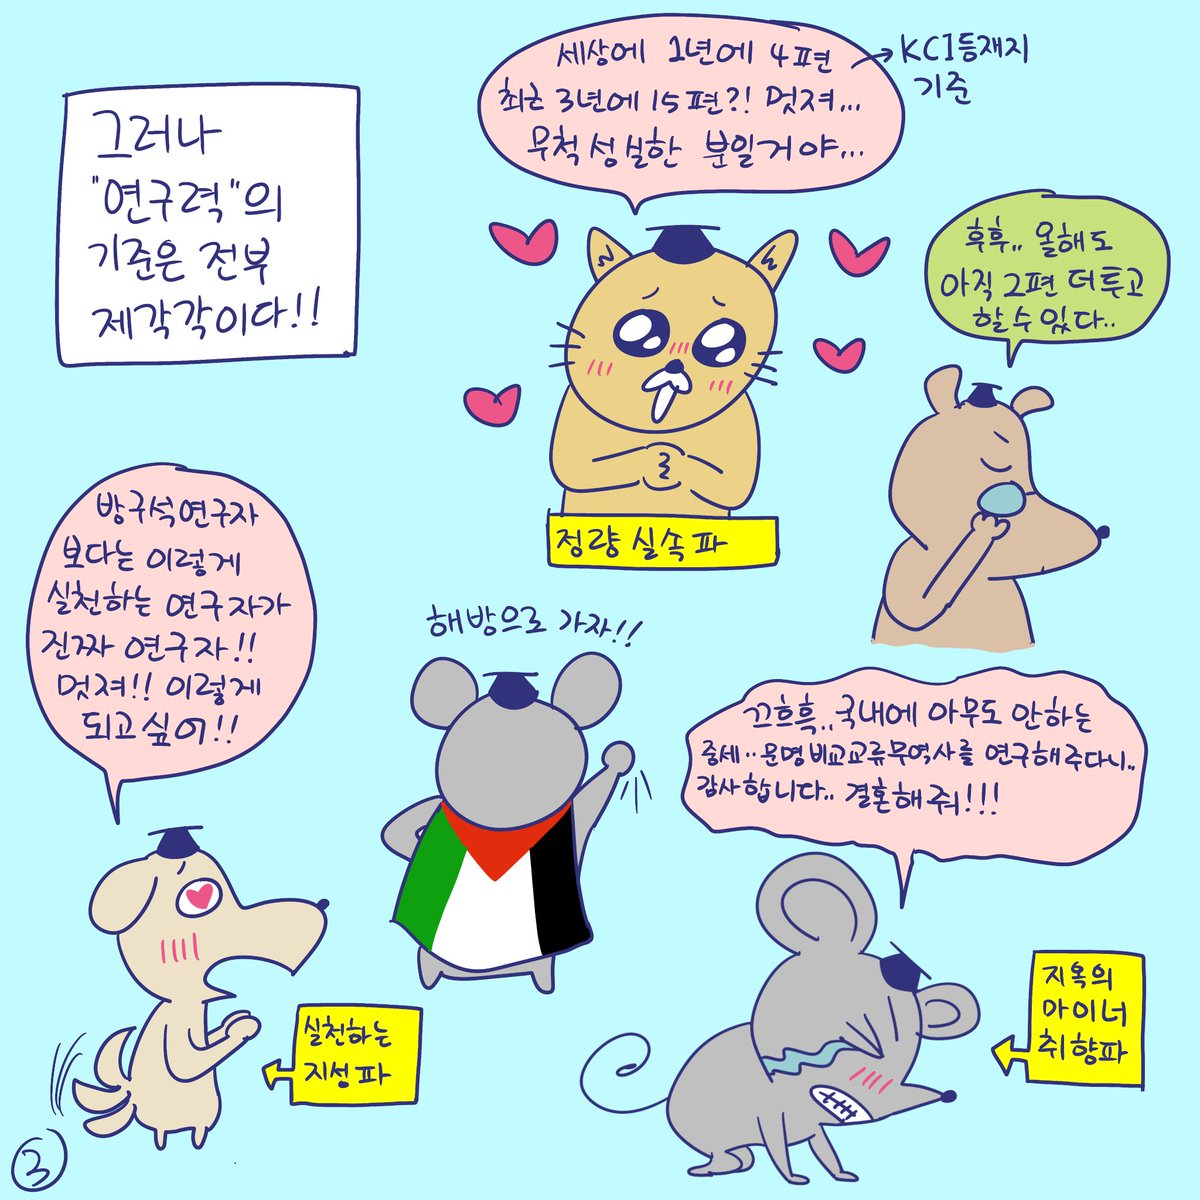 그러나
"연구력"의
기준은 전부
제각각이다!!
세상에 1년에 4편
최근 3년에 15편?! 멋져...
무척 성실한 분일거야...
KCI등재지
기준
정량 실속파
후후.. 올해도
아직 2편 더 투고
할 수 있다..
방구석연구자
보다는 이렇게
실천하는 연구자가
진짜 연구자!!
멋져!! 이렇게
되고싶어!!
실천하는
지성파
해방으로 가자!!
끄흐흑..국내에 아무도 안하는
중세..문명비교교류무역사를 연구해주다니..
감사합니다.. 결혼해줘!!!
지옥의
마이너
취향파
3